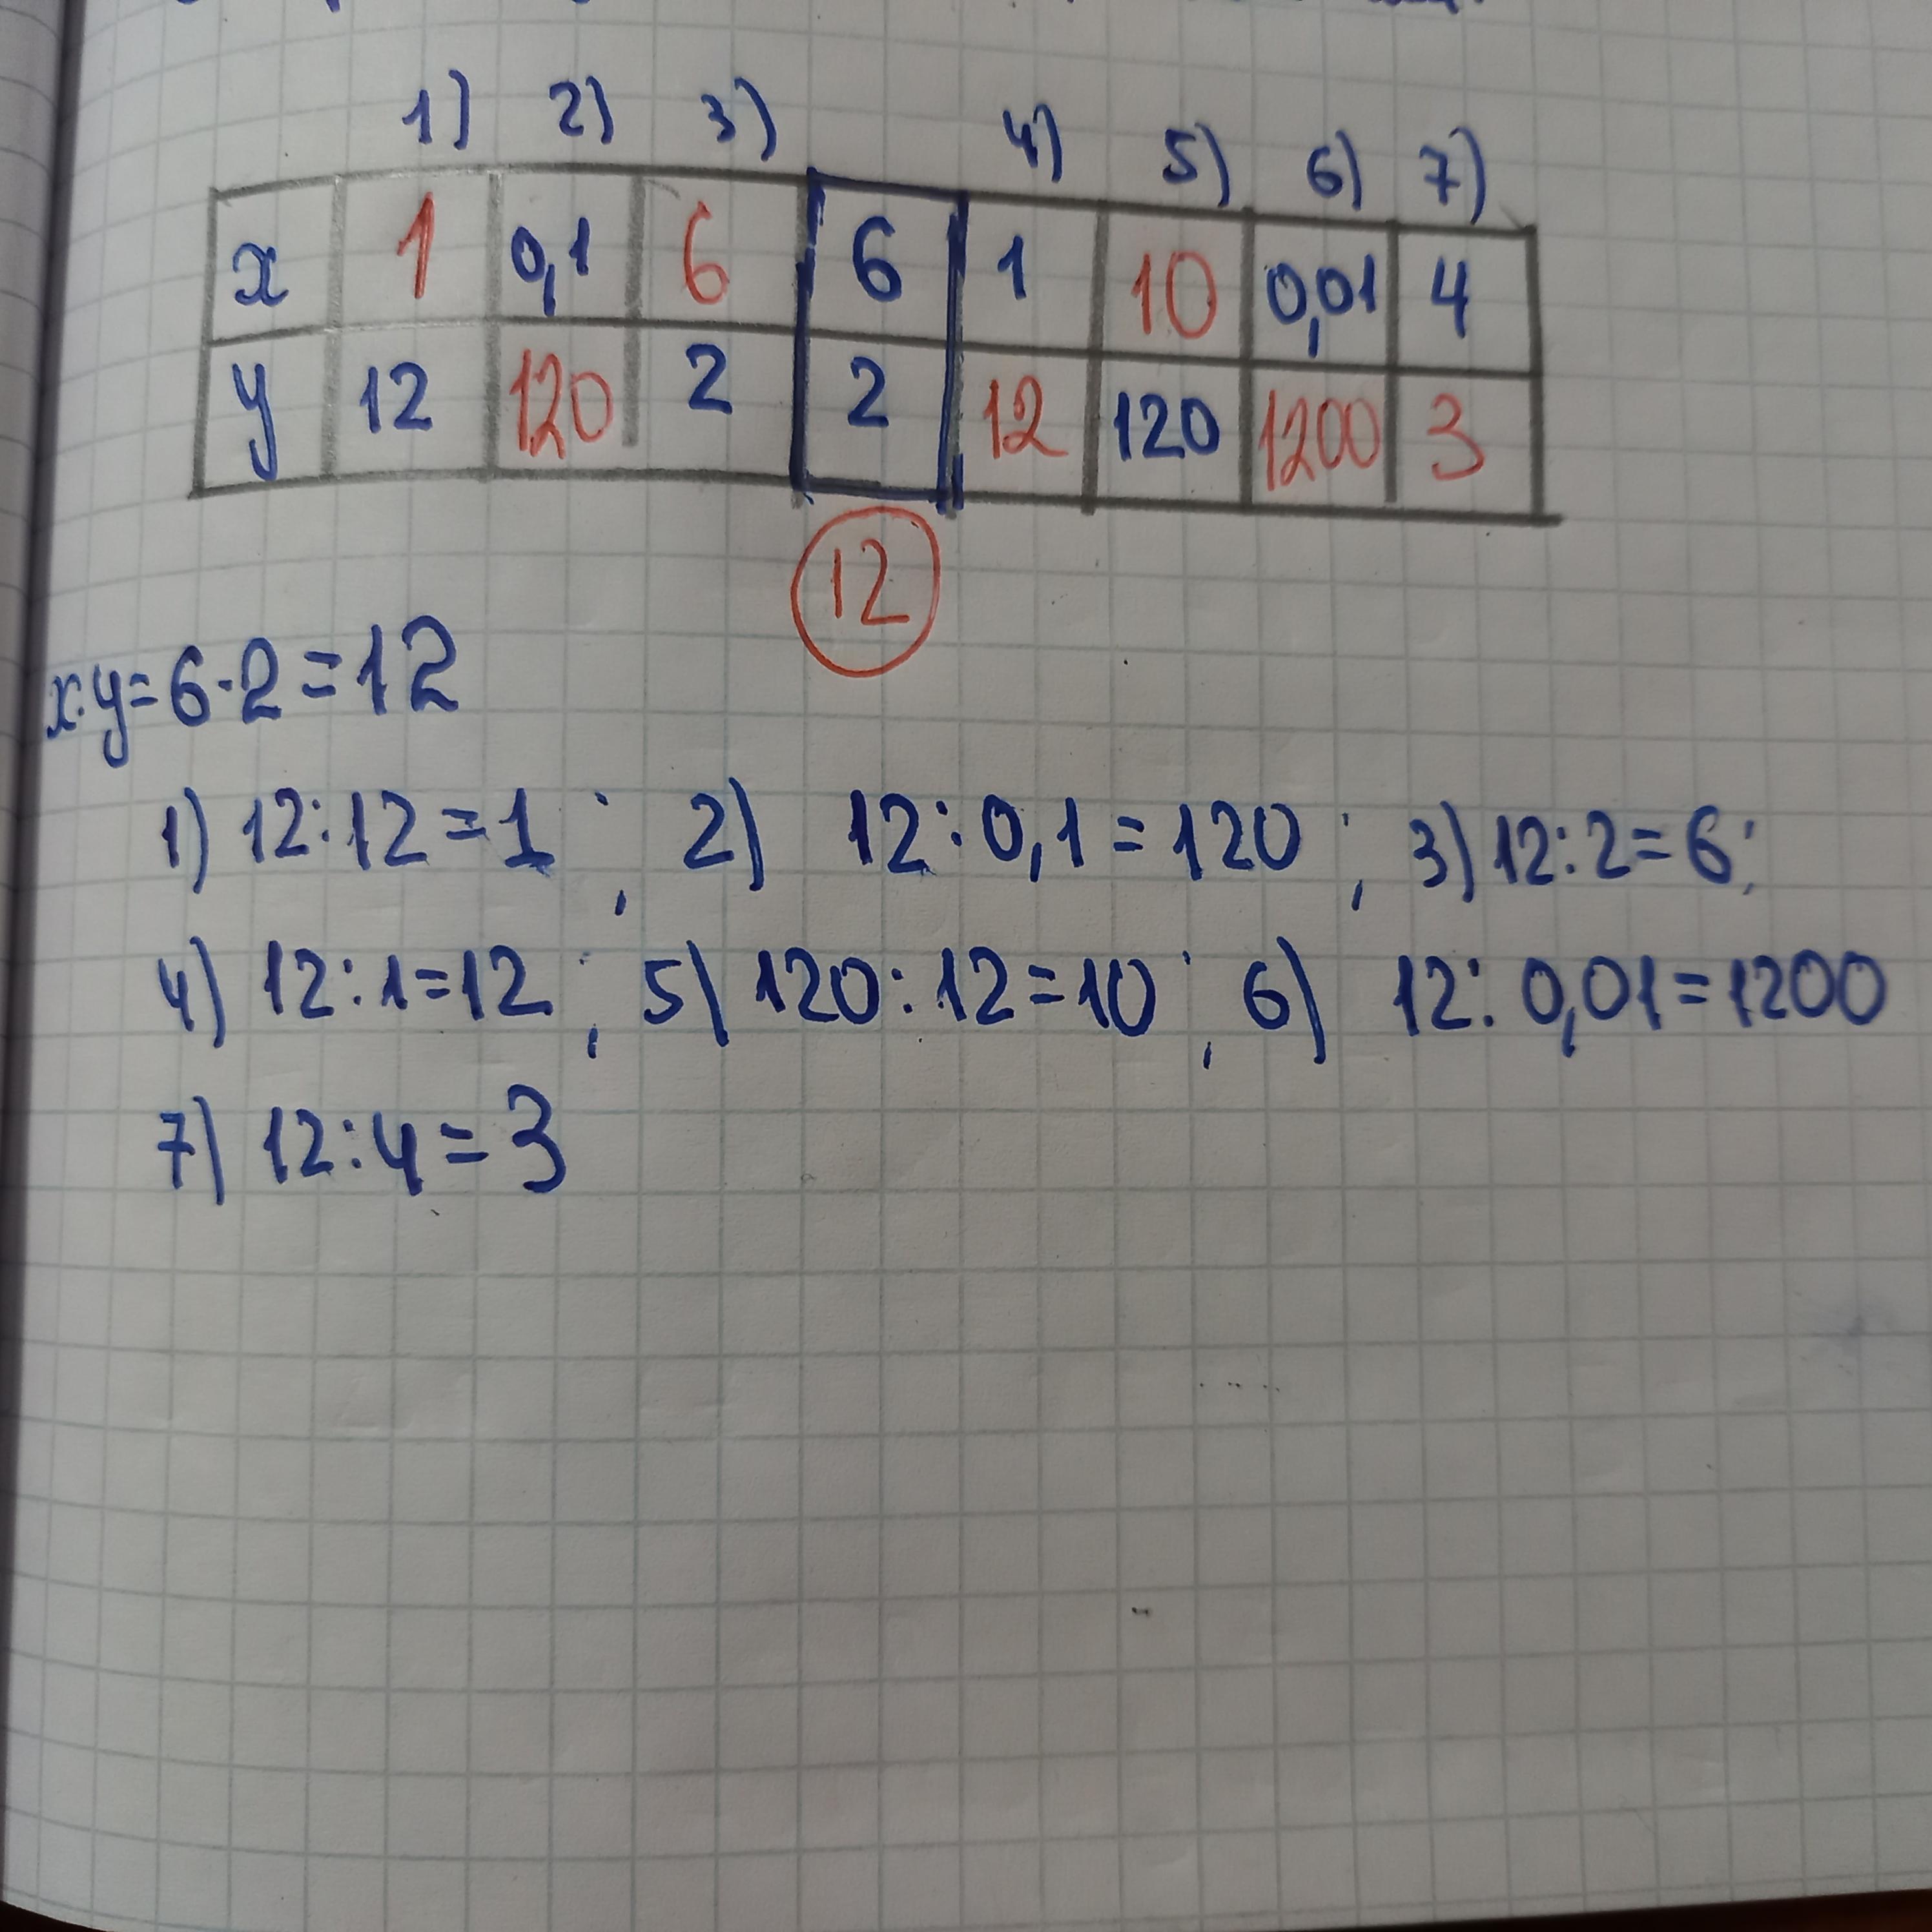 1) 2) 3) 4) 5) 6) 7)
x 1 0,1 6 6 1 10 0,01 4
y 12 120 2 2 12 120 1200 3
12
x·y=6·2=12
1) 12:12=1 ; 2) 12:0,1=120 ; 3) 12:2=6;
4) 12:1=12 ; 5) 120:12=10 ; 6) 12:0,01=1200
7) 12:4=3